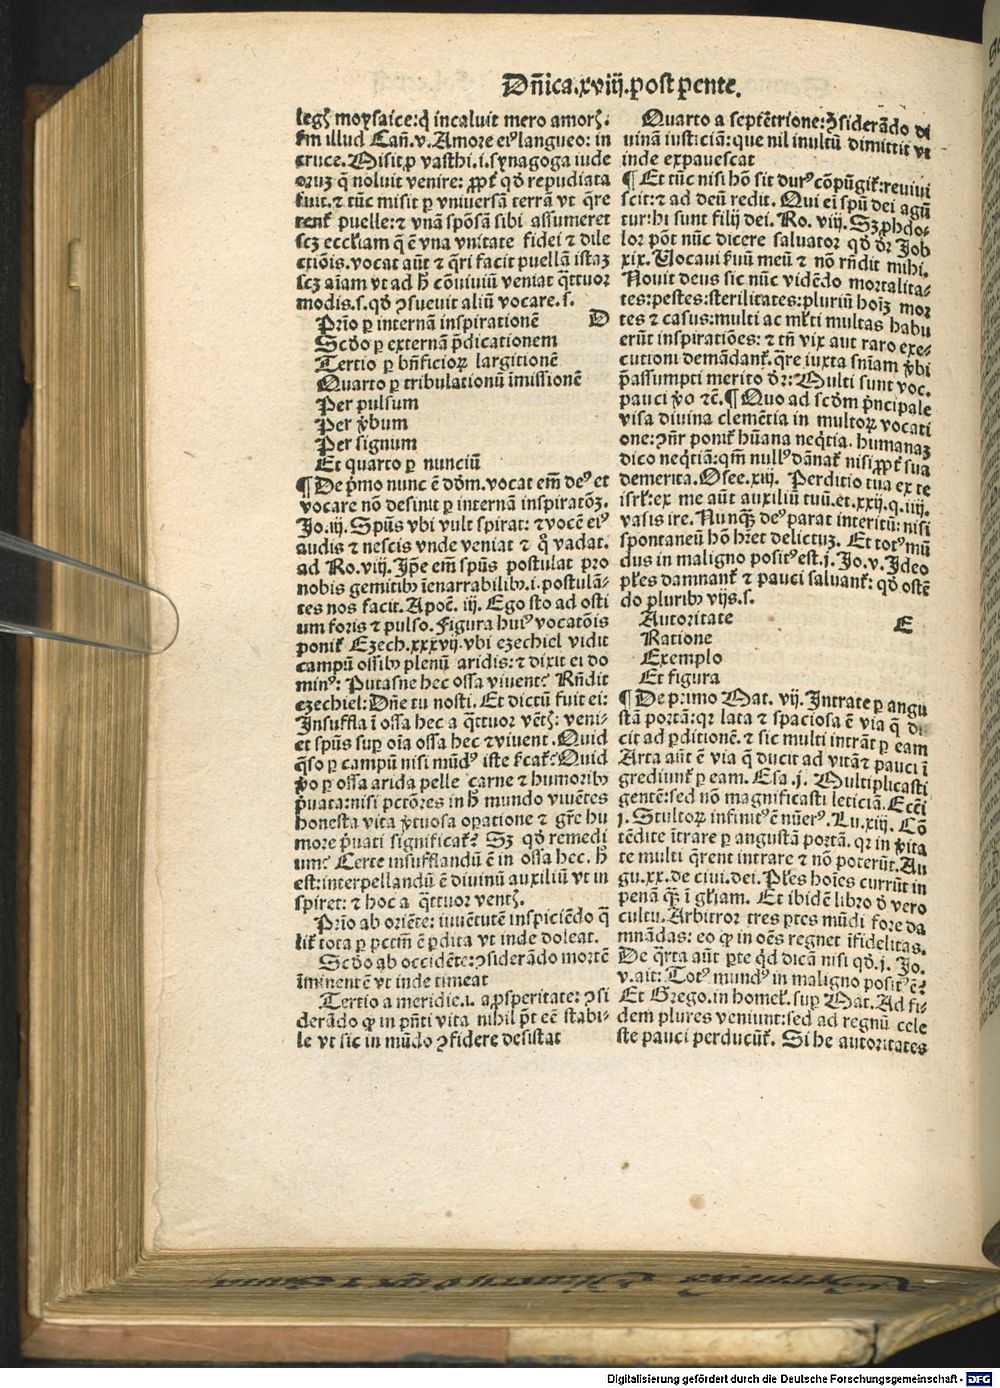 Dñica.xviij.post pente.
legꝭ moysaice: q̇ incaluit mero amorꝭ.
ẜm illud Cañ.v. Amore eiꝰ langueo: in
cruce. Misit ꝑ vasthi.i. synagoga iude
oruꝫ q̄ noluit venire: ꝓpt̉ qḋ repudiata
fuit. ⁊ tūc misit ꝑ vniuersā terrā vt q̄re
rent᷑ puelle: ⁊ vnā spōsā sibi assumeret
scꝫ eccl̉iam q̄ ē vna vnitate fidei ⁊ dile
ctiōis. vocat aūt ⁊ q̄ri facit puellā istaꝫ
scꝫ aīam vt ad ħ cōuiuiū veniat q̄ttuor
modis.s. qḋ ꝯsueuit aliū vocare.s.
Prīo ꝑ internā inspirationē D
Scḋo ꝑ externā p̄dicationem
Tertio ꝑ bn̄ficioꝝ largitionē
Quarto ꝑ tribulationū īmissionē
Per pulsum
Per ṽbum
Per signum
Et quarto ꝑ nunciū
¶ De p̓mo nunc ē ḋom. vocat em̄ deꝰ et
vocare nō desinit ꝑ internā inspiratōꝫ.
Jo.iij. Spūs vbi vult spirat: ⁊ vocē eiꝰ
audis ⁊ nescis vnde veniat ⁊ q̊ vadat.
ad Ro.viij. Ip̄e em̄ spūs postulat pro
nobis gemitibꝰ īenarrabilibꝰ.i. postulā-
tes nos facit. Apoc̄. iij. Ego sto ad osti
um foris ⁊ pulso. Figura huiꝰ vocatōis
ponit᷑ Ezech.xxxvij. vbi ezechiel vidit
campū ossibꝰ plenū aridis: ⁊ dixit ei do
minꝰ: Putasne hec ossa viuent? Rn̄dit
ezechiel: Dn̄e tu nosti. Et dictū fuit ei:
Insuffla ī ossa hec a q̄ttuor vētꝭ: veni-
et spūs suꝑ oīa ossa hec ⁊ viuent. Quid
q̄so ꝑ campū nisi mūdꝰ iste ẜcat᷑? Quid
ṽo ꝑ ossa arida pelle carne ⁊ humoribꝰ
p̓uata: nisi pctōres in ħ mundo viuētes
honesta vita ṽtuosa oꝑatione ⁊ gr̄e hu
more p̓uati significat᷑? Sꝫ qḋ remedi
um? Certe insufflandū ē in ossa hec. ħ
est: interpellandū ē diuinū auxiliū vt in
spiret: ⁊ hoc a q̄ttuor ventꝭ.
Prīo ab oriēte: iuuētutē inspiciēdo q̄
lit᷑ tota ꝑ pctm̄ ē ꝑdita vt inde doleat.
Scḋo ab occidēte: ꝯsiderādo mortē
īminentē vt inde timeat
Tertio a meridie.i. a ꝓsperitate: ꝯsi
derādo ꝙ in pn̄ti vita nihil pt̄ eē stabi-
le vt sic in mūdo ꝯfidere desistat
Quarto a septētrione: ꝯsiderādo di
uinā iusticiā: que nil inultū dimittit vt
inde expauescat
¶ Et tūc nisi hō sit durꝰ cōpūgit᷑: reuiui
scit: ⁊ ad deū redit. Qui eī spū dei agū
tur: hi sunt filij dei. Ro. viij. Sꝫ ꝓhdo-
lor pōt nūc dicere saluator qḋ ḋr Job
xix. Vocaui ẜuū meū ⁊ nō rn̄dit mihi.
Nouit deus sic nūc vidēdo mortalita-
tes: pestes: sterilitates: pluriū hoīꝫ mor
tes ⁊ casus: multi ac ml̉ti multas habu
erūt inspiratiōes: ⁊ tn̄ vix aut raro exe-
cutioni demādant᷑. q̄re iuxta sn̄iam ṽbi
p̄assumpti merito ḋr: Multi sunt voc.
pauci ṽo ⁊ē. ¶ Quo ad scḋm p̓ncipale
visa diuina clemētia in multoꝝ vocati
one: ꝯn̄r ponit᷑ hūana neq̄tia. humanaꝫ
dico neq̄tiā: qm̄ nullꝰ dānat᷑ nisi ꝓpt̉ sua
demerita. Osee.xiij. Perditio tua ex te
isrl̉: ex me aūt auxiliū tuū. et.xxij.q.iiij.
vasis ire. Nunqꝫ deꝰ parat interitū: nisi
spontaneū hō hꝫet delictuꝫ. Et totꝰ mū
dus in maligno positꝰ est.j. Jo.v. Ideo
pl̉es damnant᷑ ⁊ pauci saluant᷑: qḋ ostē
do pluribꝰ vijs.s.
Autoritate E
Ratione
Exemplo
Et figura
¶ De primo Mat. vij. Intrate ꝑ angu
stā portā: qꝛ lata ⁊ spaciosa ē via q̄ du
cit ad ꝑditionē. ⁊ sic multi intrāt ꝑ eam
Arta aūt ē via q̄ ducit ad vitā ⁊ pauci ī
grediunt᷑ ꝑ eam. Esa .j. Multiplicasti
gentē: sed nō magnificasti leticiā. Eccī
j. Stultoꝝ infinitꝰ ē nūerꝰ. Lu.xiij. Cō
tēdite ītrare ꝑ angustā portā. qꝛ in ṽita
te multi q̄rent intrare ⁊ nō poterūt. Au
gu.xx. de ciui. dei. Pl̉es hoīes currūt in
penā qꝫ ī gl̉iam. Et ibidē libro ḋ vero
cultu. Arbitror tres ꝑtes mūdi fore da
mnādas: eo ꝙ in oēs regnet īfidelitas.
De q̄rta aūt ꝑte q̇d dicā nisi qḋ.j. Jo.
v. ait: Totꝰ mundꝰ in maligno positꝰ ē?
Et Grego. in homel̉. suꝑ Mat. Ad fi-
dem plures veniunt: sed ad regnū cele
ste pauci perducūt᷑. Si he autoritates
Digitalisierung gefördert durch die Deutsche Forschungsgemeinschaft - DFG